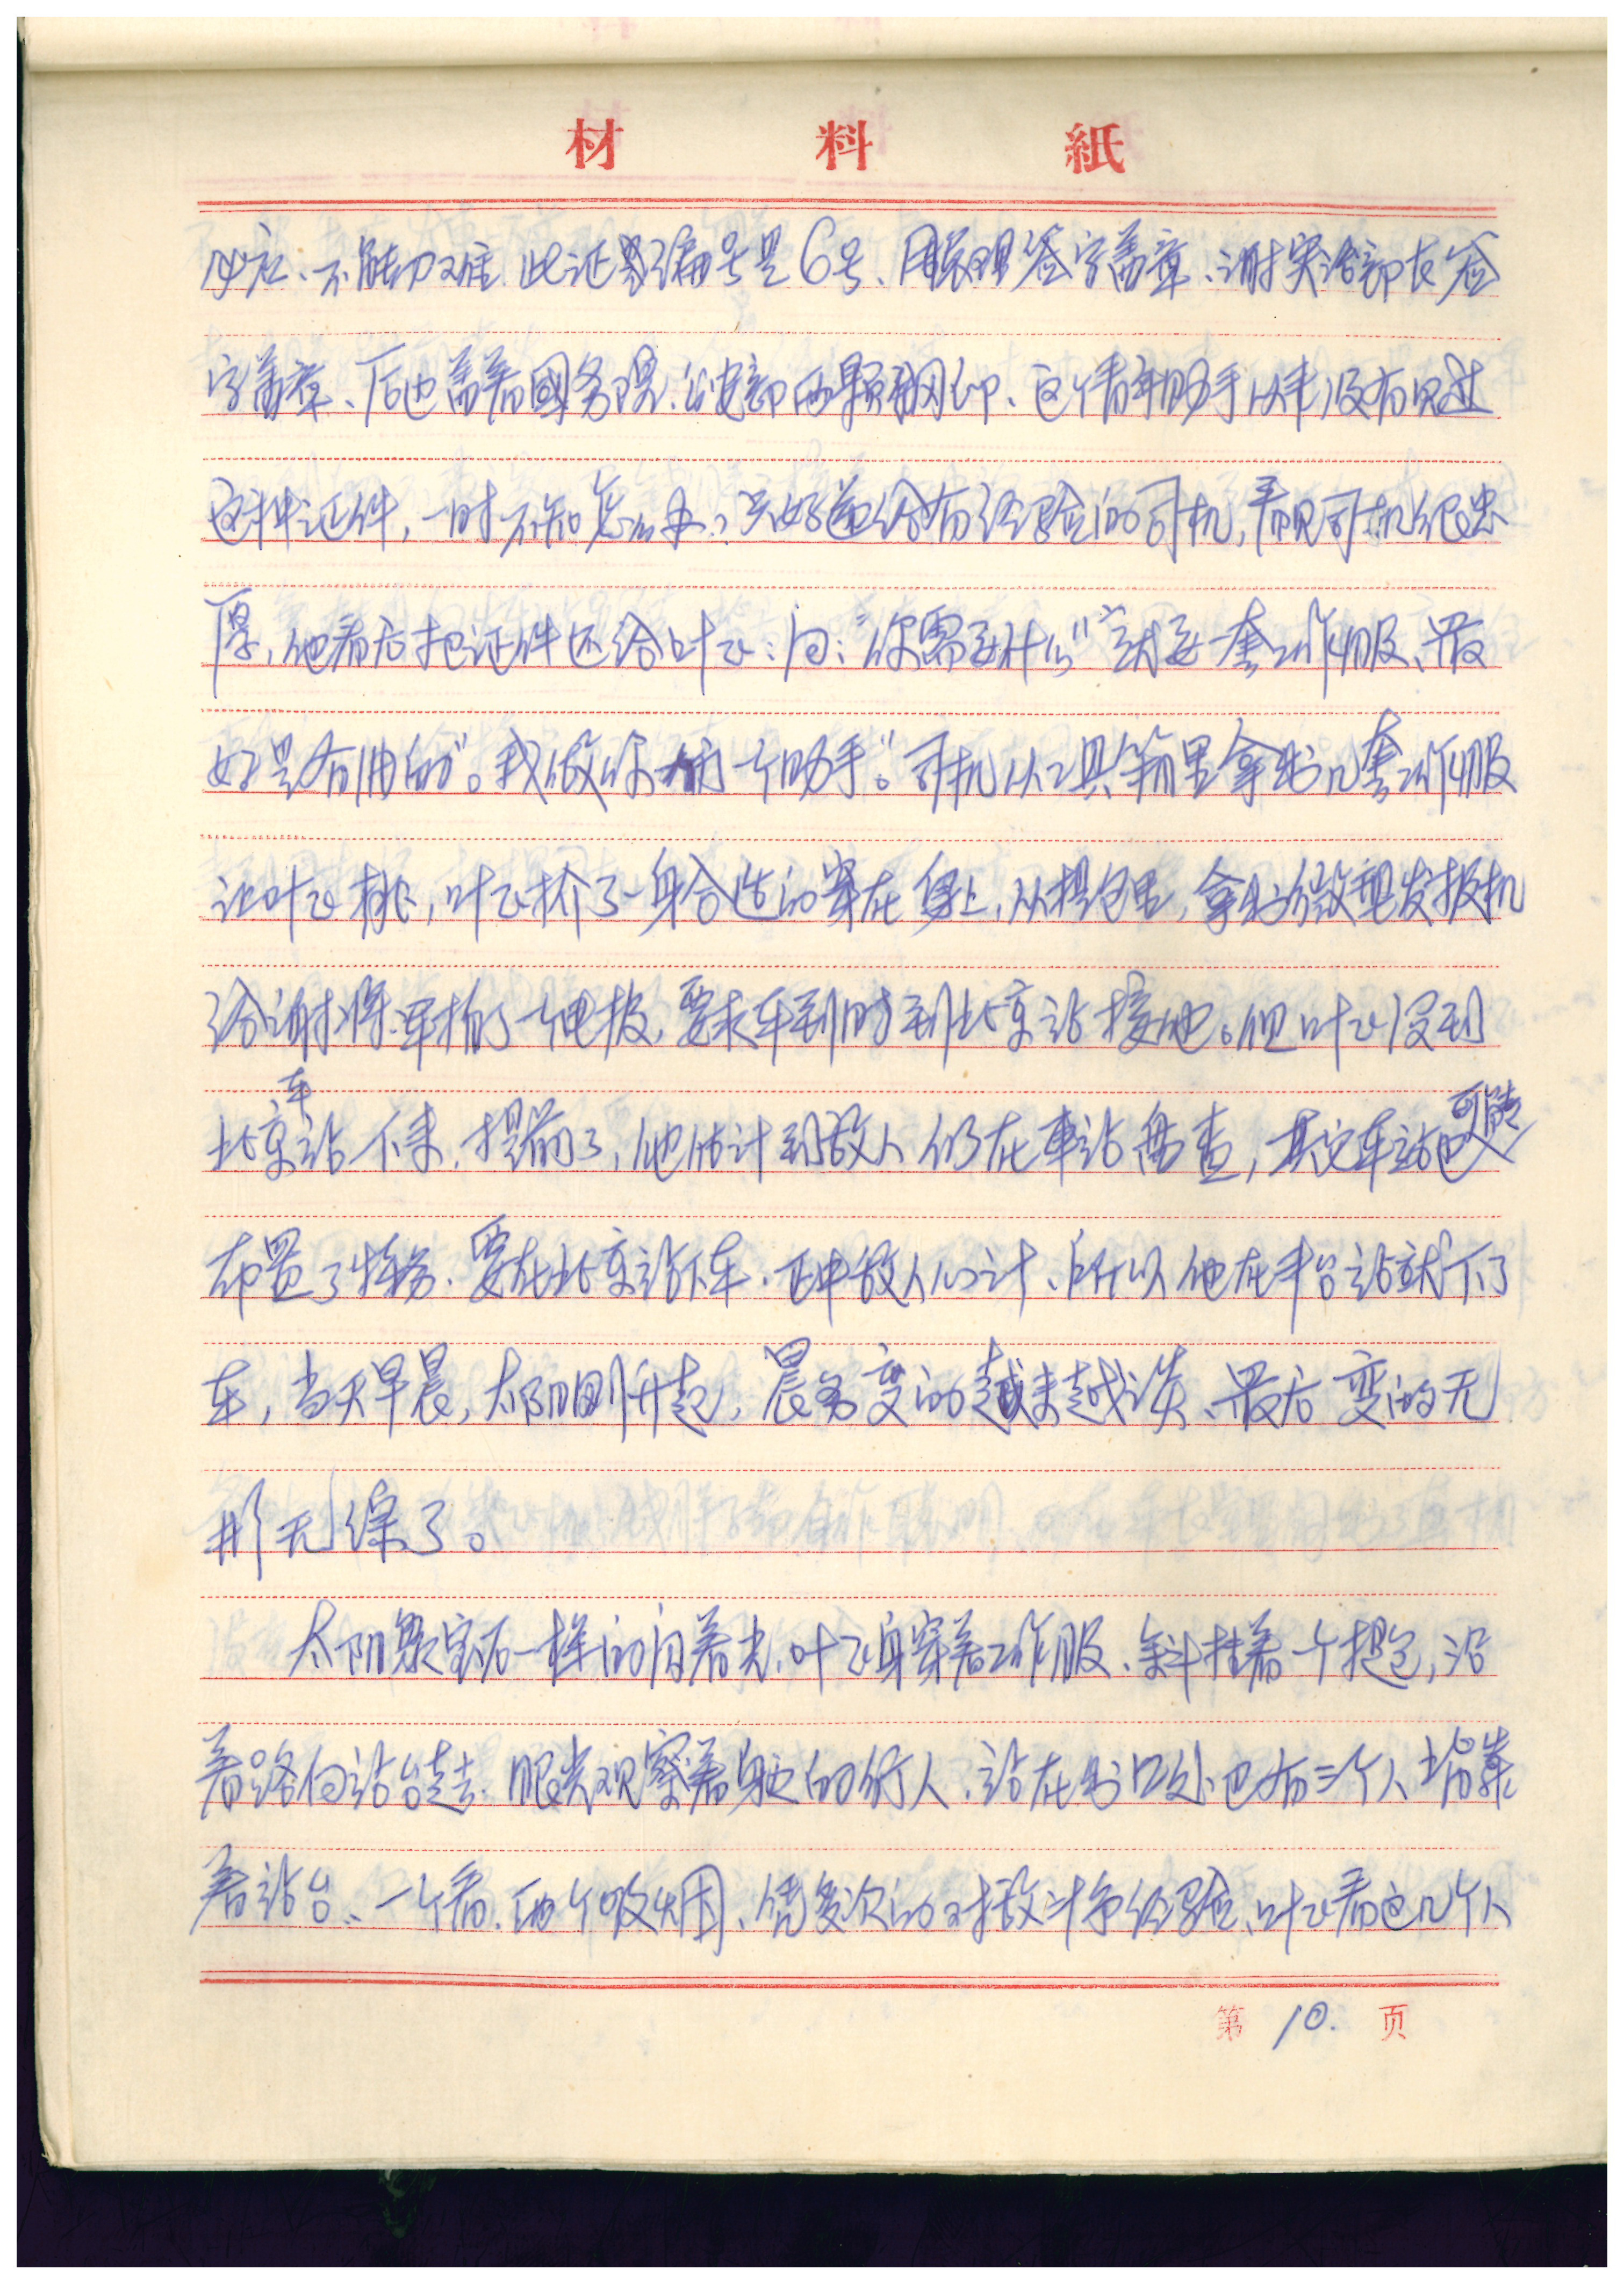 材料紙
必应、不能刁难。此证编号是6号、周总理签字盖章、谢富治部长签
字盖章、后也盖着國务院、公安部两颗钢印、这个青年助手从来没有见过
这种证件,一时不知怎么办,只好递给有经验的司机,看见司机很忠
厚,他看后把证件还给叶飞:问:“你需要什么”“就要一套工作服、最
好是有油的”。我做你的一个助手。”司机从工具箱里拿出几套工作服
让叶飞挑,叶飞挑了一身合适的穿在身上,从提包里,拿出微型发报机
给谢将军拍了一个电报,要求车到时到北京站接他。但叶飞没到
北京车站下来,提前了,他估计到敌人仍在車站盘查,其它车站也可能
布置了特务、要在北京站下车、正中敌人心计、所以他在丰台站就下了
车,当天早晨,太阳刚升起,晨雾变的越来越淡、最后变的无
形无综了。
太阳象宝石一样的闪着光,叶飞身穿着工作服、斜挂着一个提包,沿
着路向站台走去、眼光观察着身边的行人、站在出口处也有三个人背靠
着站台、一个看、两个吸烟、凭多次的对敌斗争经验、叶飞看这几个人
第10.页